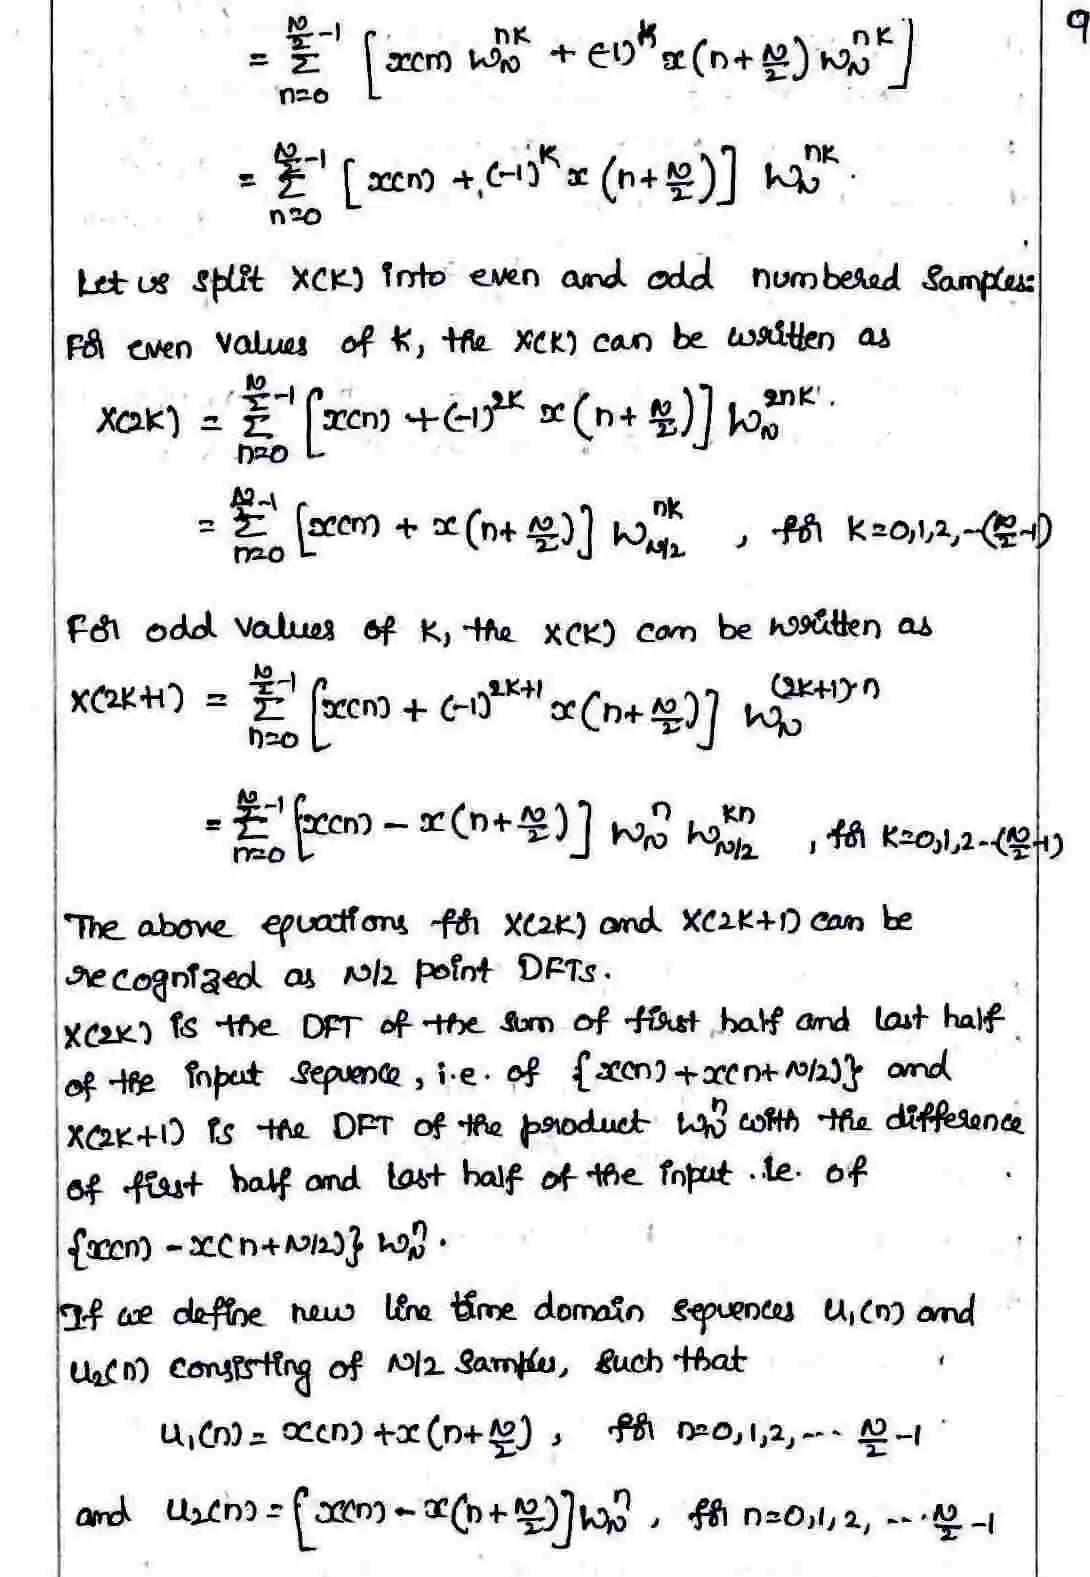 9
= \sum_{n=0}^{\frac{N}{2}-1} [ x(n) W_N^{nk} + (-1)^k x(n+\frac{N}{2}) W_N^{nk} ]
= \sum_{n=0}^{\frac{N}{2}-1} [ x(n) + (-1)^k x(n+\frac{N}{2}) ] W_N^{nk}.
Let us split X(K) into even and odd numbered samples:
For even values of K, the X(K) can be written as
X(2K) = \sum_{n=0}^{\frac{N}{2}-1} [ x(n) + (-1)^{2K} x(n+\frac{N}{2}) ] W_N^{2nk}.
= \sum_{n=0}^{\frac{N}{2}-1} [ x(n) + x(n+\frac{N}{2}) ] W_{N/2}^{nk} , for K=0,1,2,--(\frac{N}{2}-1)
For odd values of K, the X(K) can be written as
X(2K+1) = \sum_{n=0}^{\frac{N}{2}-1} [ x(n) + (-1)^{2K+1} x(n+\frac{N}{2}) ] W_N^{(2K+1)n}
= \sum_{n=0}^{\frac{N}{2}-1} [ x(n) - x(n+\frac{N}{2}) ] W_N^n W_{N/2}^{kn} , for K=0,1,2--(\frac{N}{2}-1)
The above equations for X(2K) and X(2K+1) can be
recognized as N/2 point DFTs.
X(2K) is the DFT of the sum of first half and last half
of the input sequence, i.e. of {x(n)+x(n+N/2)} and
X(2K+1) is the DFT of the product W_N^n with the difference
of first half and last half of the input .ie. of
{x(n) - x(n+N/2)} W_N^n.
If we define new line time domain sequences u_1(n) and
u_2(n) consisting of N/2 samples, such that
u_1(n) = x(n) + x(n+\frac{N}{2}) , for n=0,1,2,--- \frac{N}{2}-1
and u_2(n) = [ x(n) - x(n+\frac{N}{2}) ] W_N^n , for n=0,1,2, ---.\frac{N}{2}-1